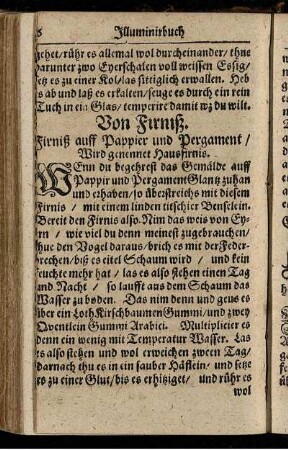 Illuminirbuch
gehet/rühr es allemal wol durcheinander/thue
darunter zwo Eyerschalen voll weissen Essig/
setz es zu einer Kol/las sittiglich erwallen. Heb
es ab und laß es erkalten/seuge es durch ein rein
Tuch in ein Glas/temperire damit wz du wilt.
Von Firniß.
Firniß auff Pappier und Pergament/
Wird genennet Hausfirnis.
WEnn du begehrest das Gemälde auff
Pappir und Pergament Glantz zuhan
und erhaben/so überstreichs mit diesem
Firnis/mit einem linden titschier Benselein.
Bereit den Firnis also. Nim das weis von Ey-
rn/wie viel du denn meinest zugebrauchen/
thue den Vogel daraus/brich es mit der Feder-
brechen/biß es eitel Schaum wird/und kein
feuchte mehr hat/las es also stehen einen Tag
und Nacht/so laufft aus dem Schaum das
Wasser zu boden. Das nim denn und geus es
über ein Loth Kirschbaumen Gummi/und zwey
Qventlein Gummi Arabici. Multiplicier es
denn ein wenig mit Temperatur Wasser. Las
es also stehen und wol erweichen zween Tag/
darnach thu es in ein sauber Häflein/und setze
es zu einer Glut/bis es erhitziget/und rühr es
wol